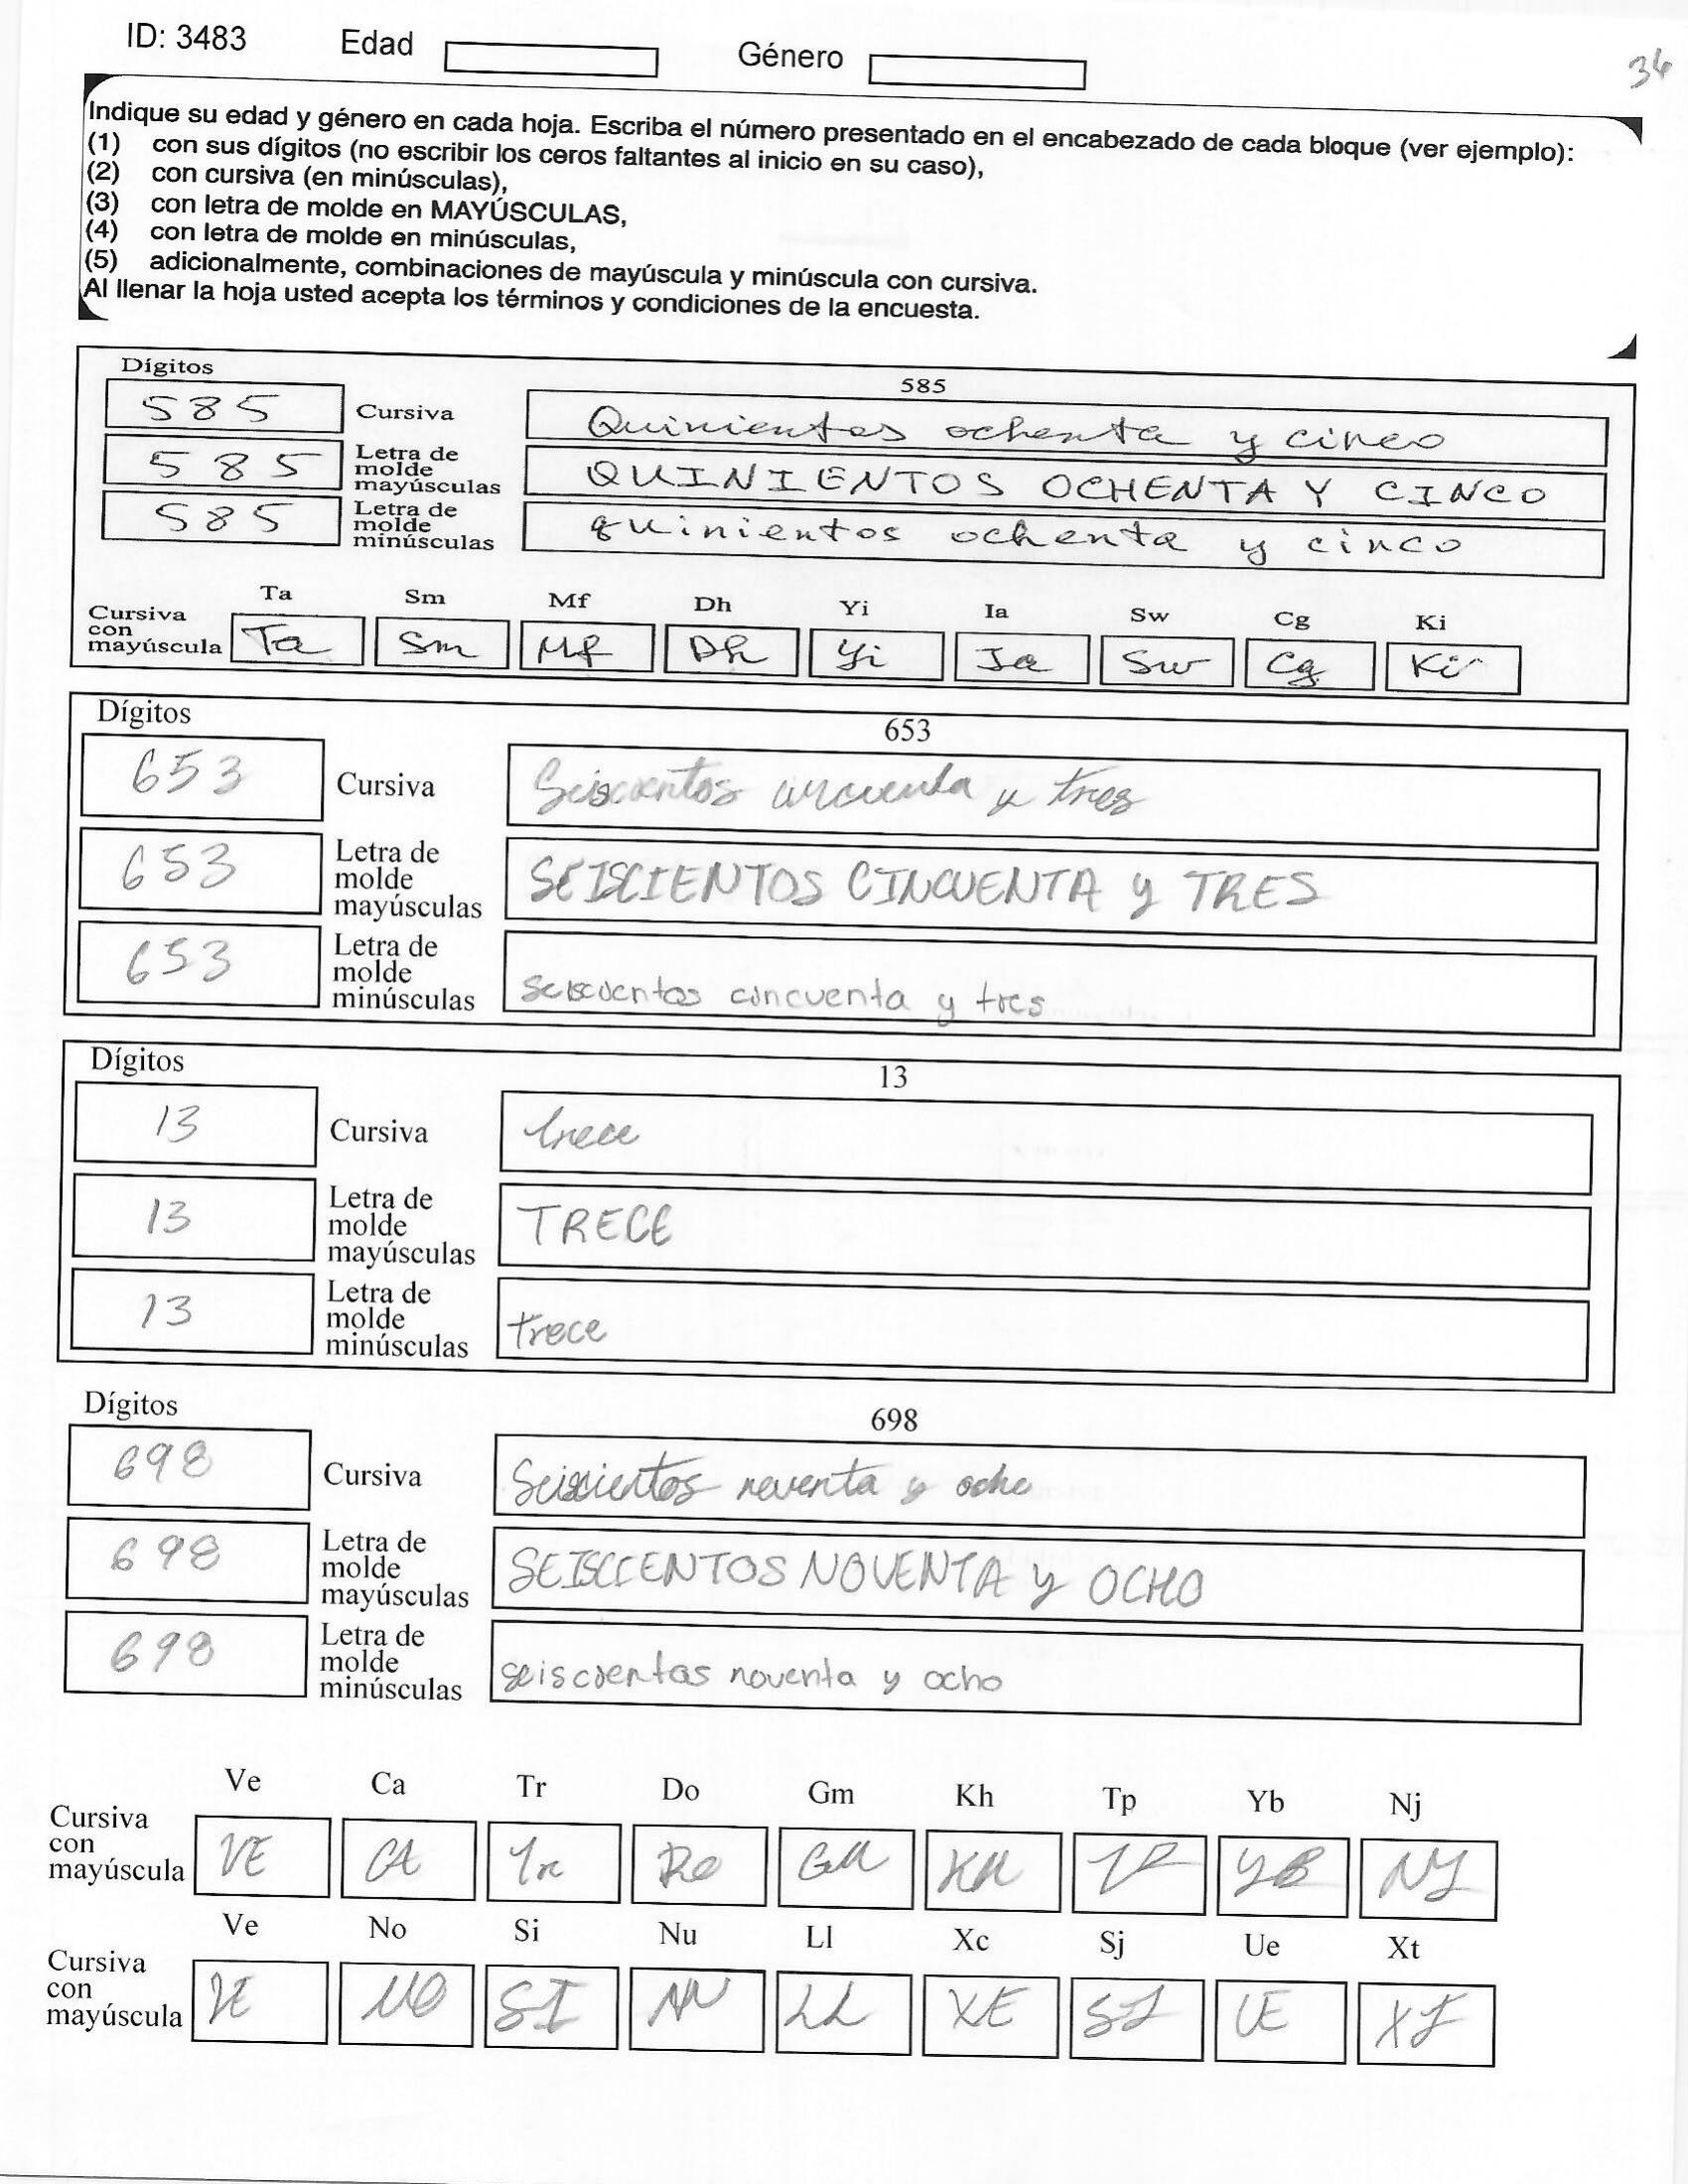 ID: 3483 Edad Género 36
Indique su edad y género en cada hoja. Escriba el número presentado en el encabezado de cada bloque (ver ejemplo):
(1) con sus dígitos (no escribir los ceros faltantes al inicio en su caso),
(2) con cursiva (en minúsculas),
(3) con letra de molde en MAYÚSCULAS,
(4) con letra de molde en minúsculas,
(5) adicionalmente, combinaciones de mayúscula y minúscula con cursiva.
Al llenar la hoja usted acepta los términos y condiciones de la encuesta.
Dígitos 585
585 Cursiva Quinientos ochenta y cinco
585 Letra de molde mayúsculas QUINIENTOS OCHENTA Y CINCO
585 Letra de molde minúsculas quinientos ochenta y cinco
Ta Sm Mf Dh Yi Ia Sw Cg Ki
Cursiva con mayúscula Ta Sm Mf Dh Yi Ia Sw Cg Ki
Dígitos 653
653 Cursiva Seiscientos cincuenta y tres
653 Letra de molde mayúsculas SEISCIENTOS CINCUENTA y TRES
653 Letra de molde minúsculas seiscientos cincuenta y tres
Dígitos 13
13 Cursiva trece
13 Letra de molde mayúsculas TRECE
13 Letra de molde minúsculas trece
Dígitos 698
698 Cursiva Seiscientos noventa y ocho
698 Letra de molde mayúsculas SEISCIENTOS NOVENTA y OCHO
698 Letra de molde minúsculas seiscientos noventa y ocho
Ve Ca Tr Do Gm Kh Tp Yb Nj
Cursiva con mayúscula VE CA Tr Do GM KH TP YB NJ
Ve No Si Nu Ll Xc Sj Ue Xt
Cursiva con mayúscula VE NO SI NU LL XE SJ UE